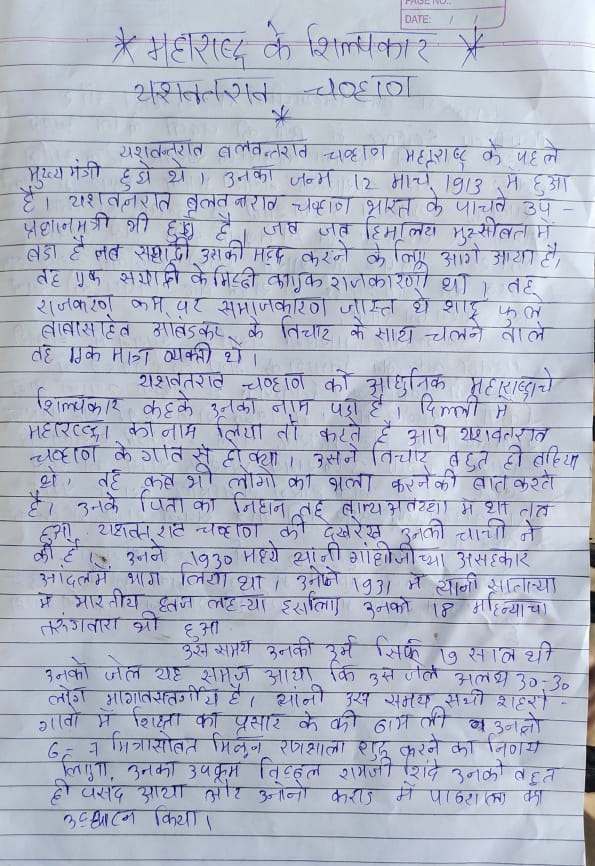 PAGE NO.:
DATE: / /
* महाराष्ट्र के शिल्पकार *
यशवंतराव चव्हाण
*
यशवन्तराव बलवन्तराव चव्हाण महाराष्ट्र के पहले
मुख्यमंत्री हुये थे। उनका जन्म 12 मार्च 1913 में हुआ
है। यशवन्तराव बलवन्तराव चव्हाण भारत के पाचवे उप-
प्रधानमंत्री भी हुए है, जब जब हिमालय मुस्सीबत में
बडा है तब सह्याद्री उसकी मद्द करने के लिए आगे आया है,
वह एक सह्याद्री के मिट्टी का एक राजकारणी था। वह
राजकरण कम पर समाजकारण जास्त थे शाहू फुले
बाबासाहेब आंबेडकर के विचार के साथ चलने वाले
वह एक मात्र व्यक्ती थे।
यशवंतराव चव्हाण को आधुनिक महाराष्ट्राचे
शिल्पकार कहके उनको नाम पडा है। दिल्ली में
महाराष्ट्र का नाम लिया तो कहते है आप यशवंतराव
चव्हाण के गाव से हो क्या। उसने विचार बहुत ही बढिया
थे। वह कब भी लोगो का भला करनेकी बात करते
है। उनके पिता का निधन वह बाल्य अवस्था में था तब
हुआ. यशवंतराव चव्हाण की देखरेख उनकी चाची ने
की है। उनने 1930 मध्ये त्यांनी गांधीजींच्या असहकार
आंदलमें भाग लिया था। उनोने 1931 में त्यांनी साताऱ्या
में भारतीय ध्वज लहऱ्या इसलिए उनको 18 महिन्याचा
तरुंगवारा भी हुआ
उस समय उनकी उर्म सिर्फ 19 साल थी
उनको जेल यह समज आया कि उस जेल 30-30
लोग है। यांनी उस समय सभी शहरो-
गावो में शिक्षा का प्रसार के की ठाम ली उनलो
6-7 मित्रासोबत मिलून शुरू करने का निर्णय
लिया. उनका उपक्रम विठ्ठल रामजी शिंदे उनको बहुत
ही पसंद आया और उनोनो कराड में पाठशाला का
उद्घाटन किया।